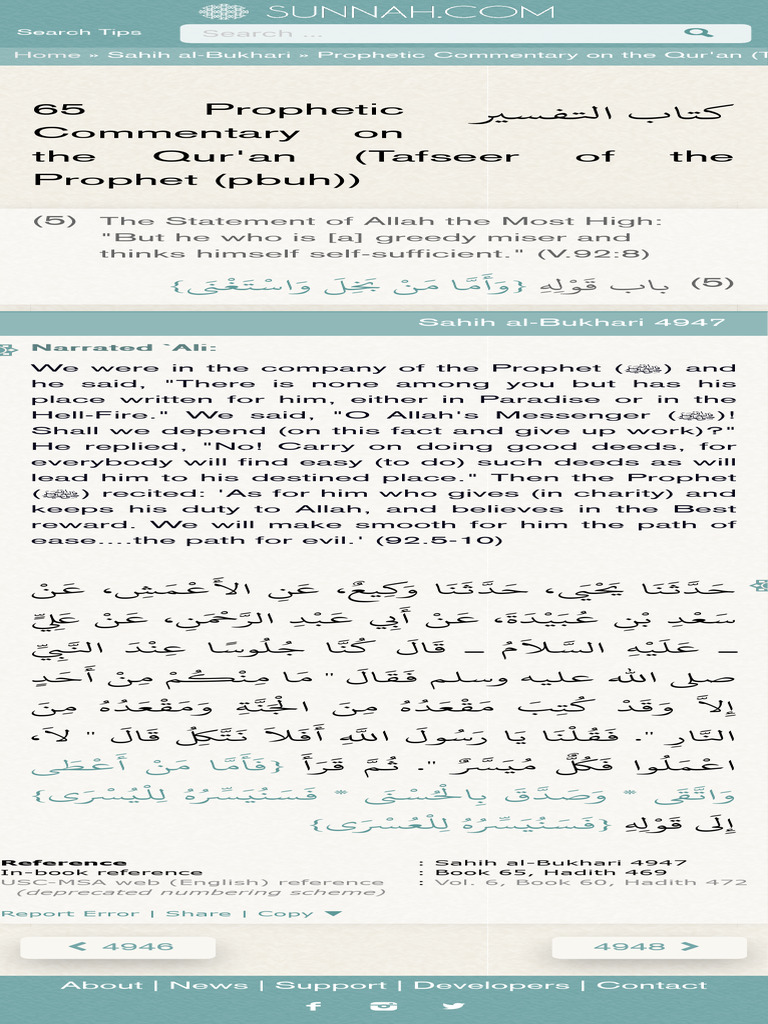 SUNNAH.COM
Search Tips
Search ...
Home » Sahih al-Bukhari » Prophetic Commentary on the Qur'an (T
65 Prophetic
كتاب التفسير
Commentary on
the Qur'an (Tafseer of the
Prophet (pbuh))
(5) The Statement of Allah the Most High:
"But he who is [a] greedy miser and
thinks himself self-sufficient." (V.92:8)
(5) باب قَوْلِهِ {وَأَمَّا مَنْ بَخِلَ وَاسْتَغْنَى}
Sahih al-Bukhari 4947
Narrated `Ali:
We were in the company of the Prophet (ﷺ) and
he said, "There is none among you but has his
place written for him, either in Paradise or in the
Hell-Fire." We said, "O Allah's Messenger (ﷺ)!
Shall we depend (on this fact and give up work)?"
He replied, "No! Carry on doing good deeds, for
everybody will find easy (to do) such deeds as will
lead him to his destined place." Then the Prophet
(ﷺ) recited: 'As for him who gives (in charity) and
keeps his duty to Allah, and believes in the Best
reward. We will make smooth for him the path of
ease....the path for evil.' (92.5-10)
حَدَّثَنَا يَحْيَى، حَدَّثَنَا وَكِيعٌ، عَنِ الأَعْمَشِ، عَنْ
سَعْدِ بْنِ عُبَيْدَةَ، عَنْ أَبِي عَبْدِ الرَّحْمَنِ، عَنْ عَلِيٍّ
ـ عَلَيْهِ السَّلاَمُ ـ قَالَ كُنَّا جُلُوسًا عِنْدَ النَّبِيِّ
صلى الله عليه وسلم فَقَالَ " مَا مِنْكُمْ مِنْ أَحَدٍ
إِلاَّ وَقَدْ كُتِبَ مَقْعَدُهُ مِنَ الْجَنَّةِ وَمَقْعَدُهُ مِنَ
النَّارِ ". فَقُلْنَا يَا رَسُولَ اللَّهِ أَفَلاَ نَتَّكِلُ قَالَ " لاَ،
اعْمَلُوا فَكُلٌّ مُيَسَّرٌ ". ثُمَّ قَرَأَ {فَأَمَّا مَنْ أَعْطَى
وَاتَّقَى * وَصَدَّقَ بِالْحُسْنَى * فَسَنُيَسِّرُهُ لِلْيُسْرَى}
إِلَى قَوْلِهِ {فَسَنُيَسِّرُهُ لِلْعُسْرَى}
Reference : Sahih al-Bukhari 4947
In-book reference : Book 65, Hadith 469
USC-MSA web (English) reference : Vol. 6, Book 60, Hadith 472
(deprecated numbering scheme)
Report Error | Share | Copy ▼
4946
4948
About | News | Support | Developers | Contact